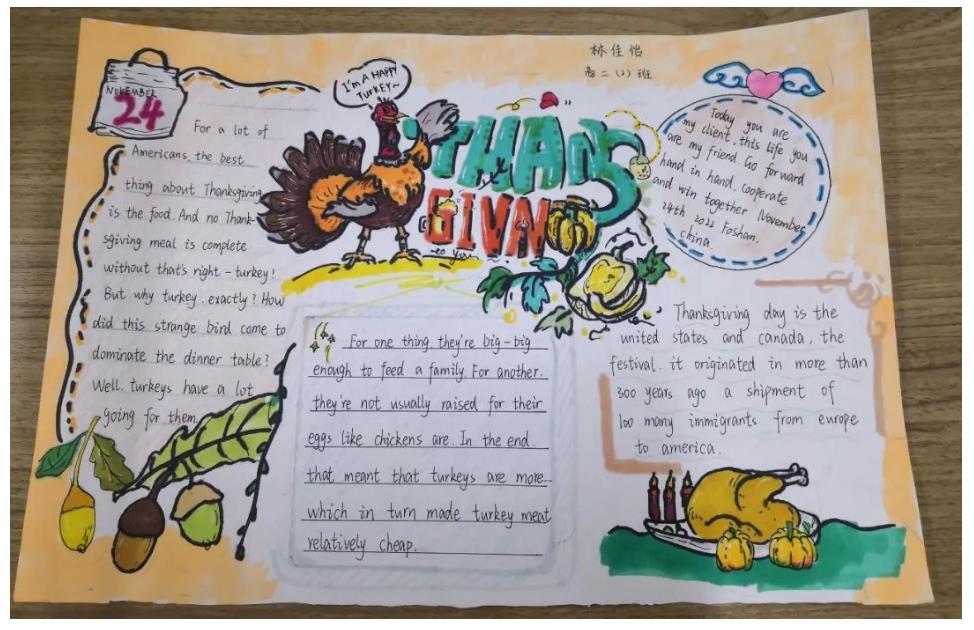 林佳怡
高二(2)班
NOVEMBER
24
I'm A HAPPY
TURKEY~
THANS
GIVN
to you
For a lot of
Americans, the best
thing about Thanksgiving
is the food. And no Thank-
sgiving meal is complete
without that's right - turkey!
But why turkey. exactly? How
did this strange bird come to
dominate the dinner table?
Well. turkeys have a lot
going for them.
For one thing. they're big-big
enough to feed a family. For another.
they're not usually raised for their
eggs like chickens are. In the end.
that meant that turkeys are more..
which in turn made turkey meat
relatively cheap.
Today you are
my client, this life you
are my friend. Go forward
hand in hand. cooperate
and win together November
24th 2022 Foshan,
china.
Thanksgiving day is the
united states and canada, the
festival. it originated in more than
300 years ago a shipment of
100 many immigrants from europe
to america.